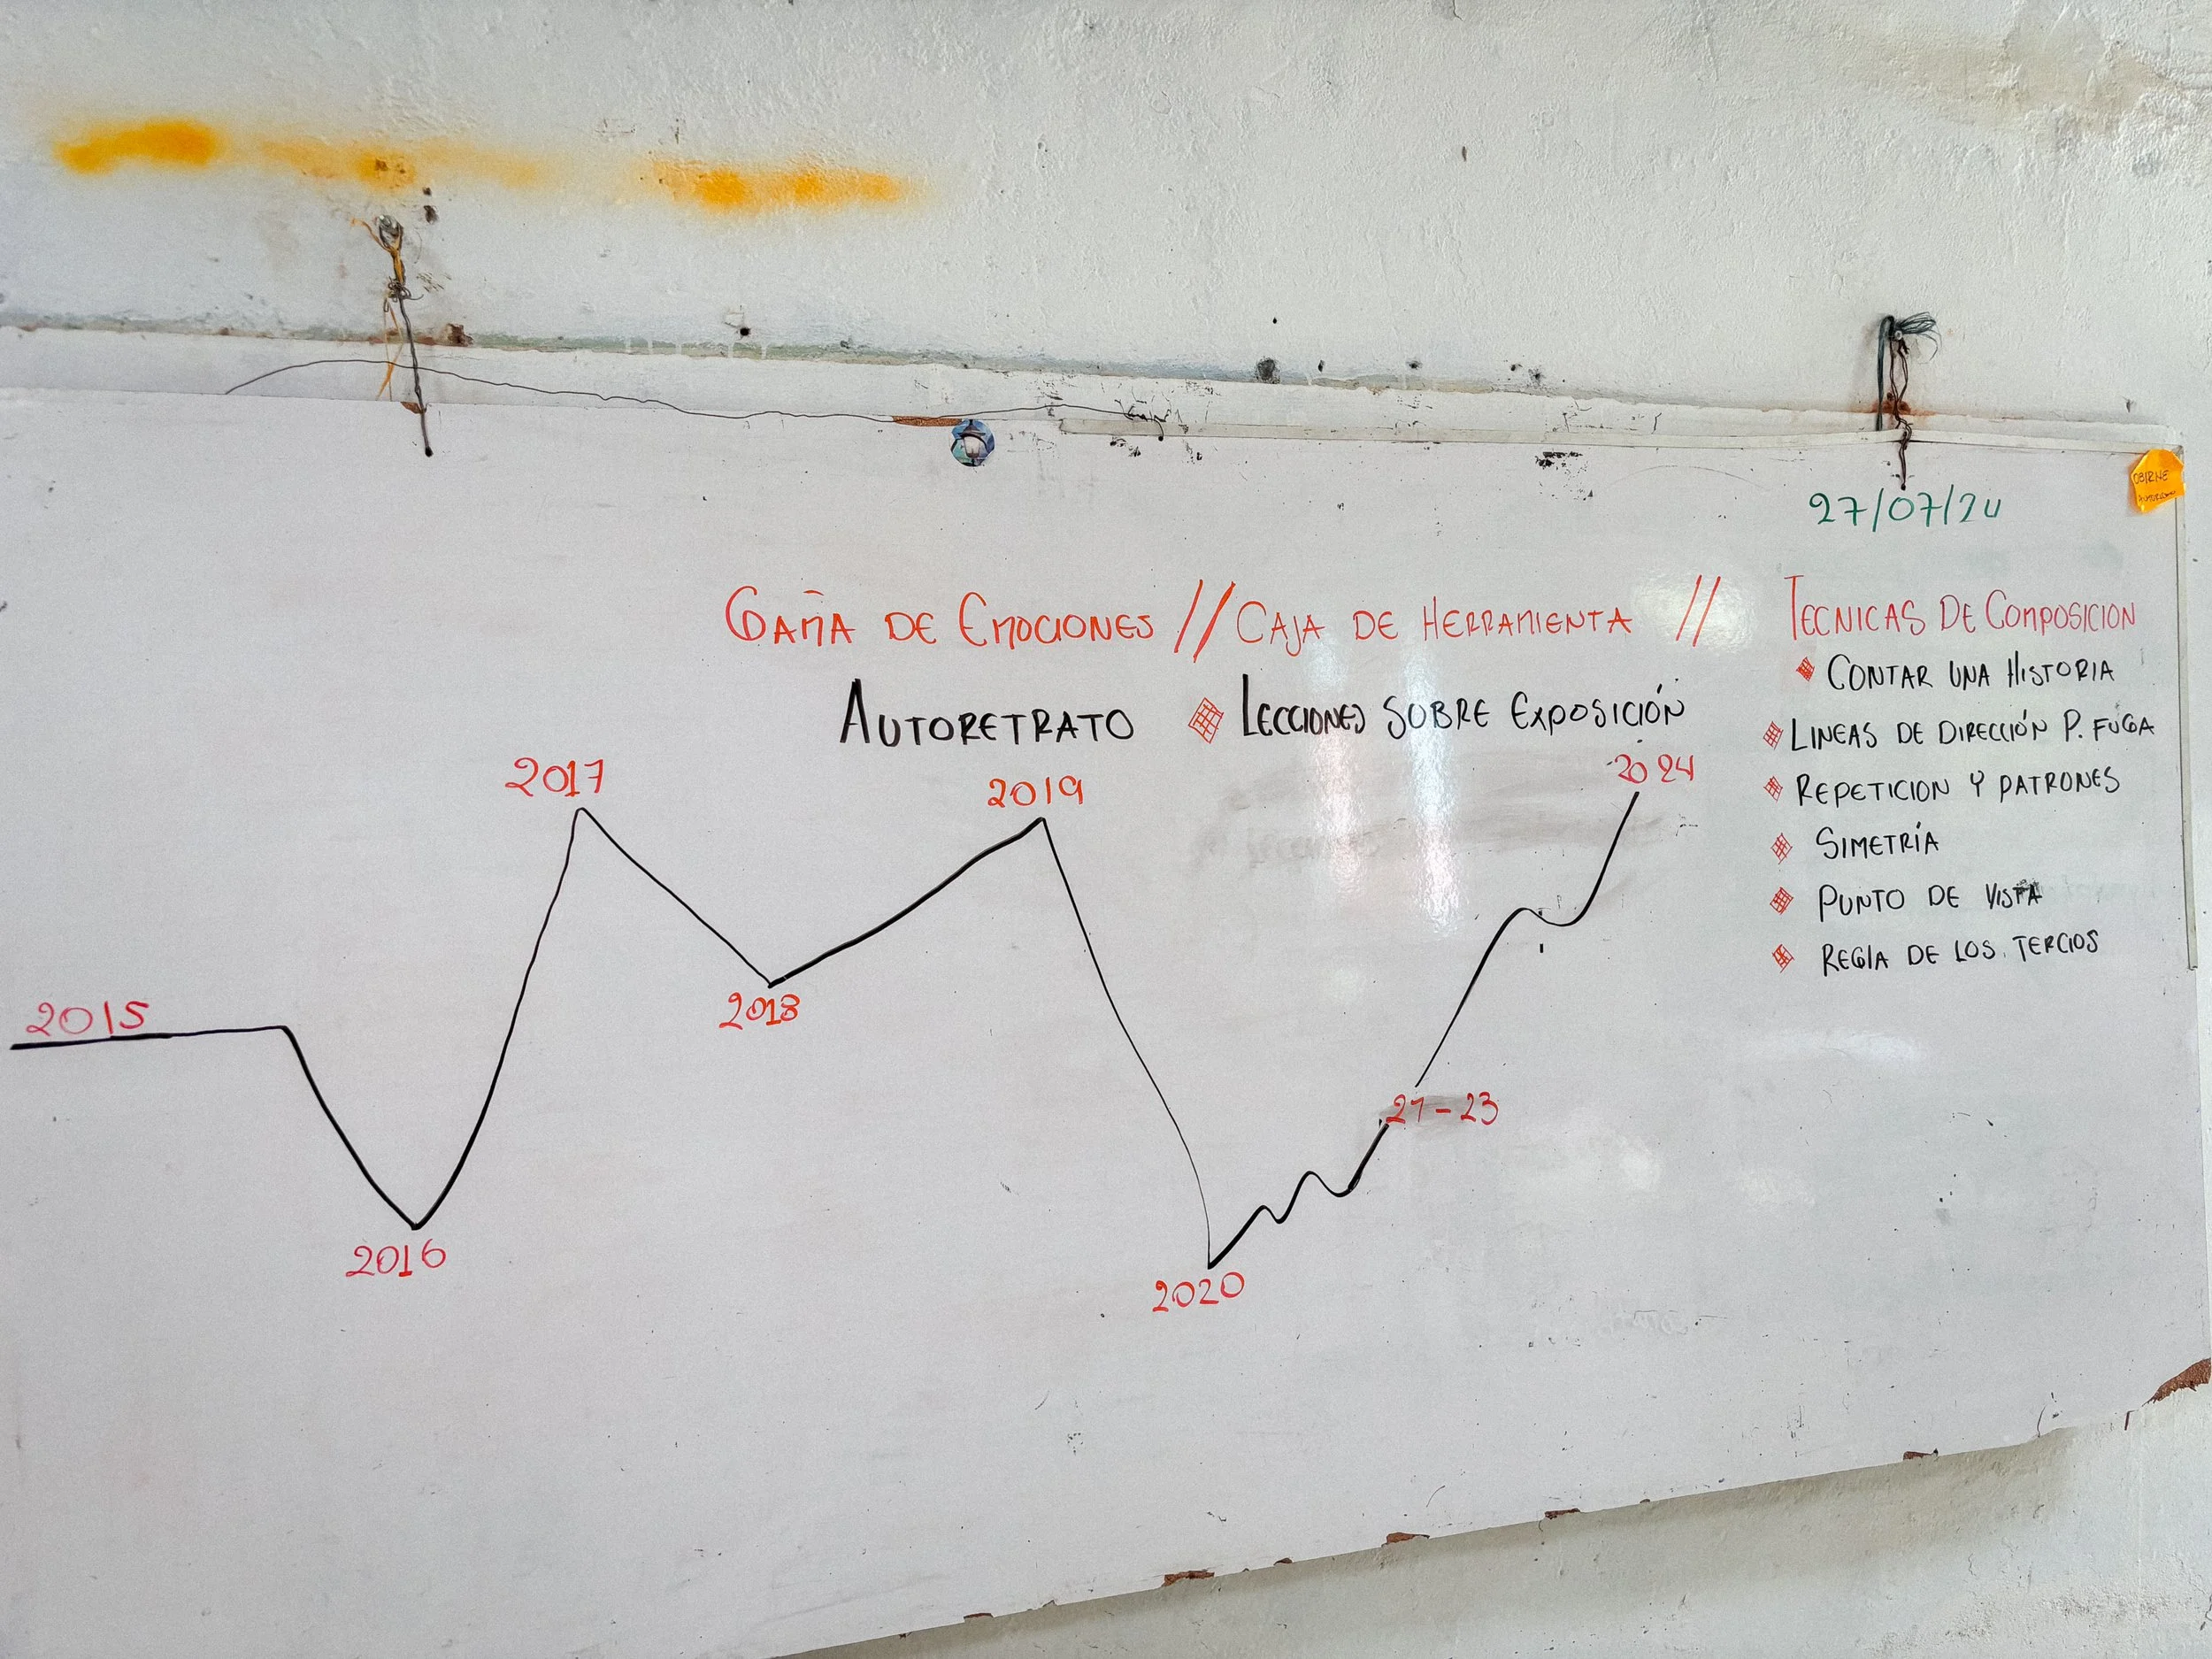 27/07/24
GAMA DE EMOCIONES // CAJA DE HERRAMIENTA // TECNICAS DE COMPOSICION
AUTORETRATO
LECCIONES SOBRE EXPOSICIÓN
CONTAR UNA HISTORIA
LINEAS DE DIRECCIÓN P. FUGA
REPETICION Y PATRONES
SIMETRÍA
PUNTO DE VISTA
REGLA DE LOS TERCIOS
2015
2016
2017
2018
2019
2020
21-23
2024